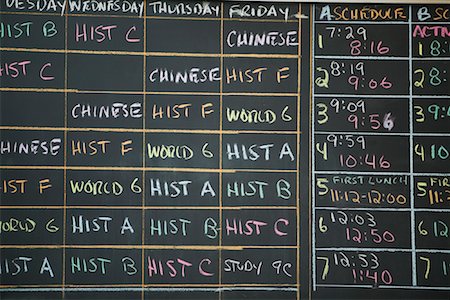 UESDAY WEDNESDAY THURSDAY FRIDAY
HIST B HIST C CHINESE
HIST C CHINESE HIST F
CHINESE HIST F WORLD 6
CHINESE HIST F WORLD 6 HIST A
HIST F WORLD 6 HIST A HIST B
WORLD 6 HIST A HIST B HIST C
HIST A HIST B HIST C STUDY 9C
A SCHEDULE
1 7:29
8:16
2 8:19
9:06
3 9:09
9:56
4 9:59
10:46
5 FIRST LUNCH
11:12-12:00
6 12:03
12:50
7 12:53
1:40
B SC
ACTI
1 8:
2 8:
3 9:
4 10:
5 FIRS
11:
6 12:
7 12: